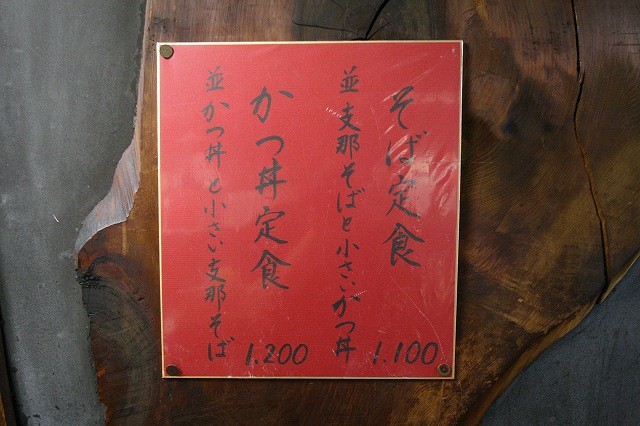 そば定食
並支那そばと小さいかつ丼
1.100
かつ丼定食
並かつ丼と小さい支那そば
1.200